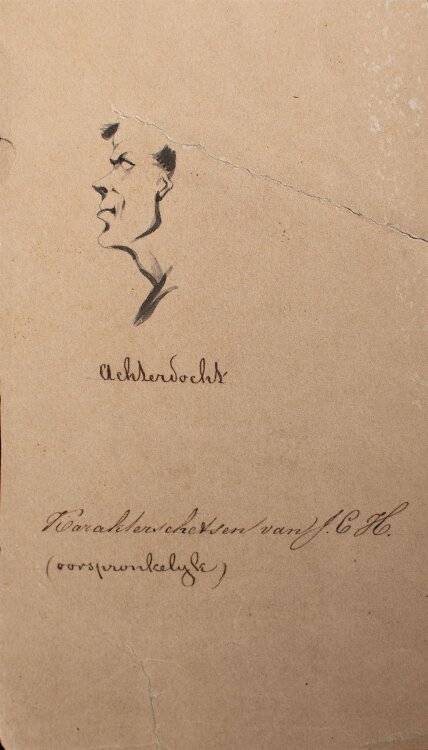 Achterdocht
Karakterschetsen van J. C. H.
(oorspronkelyke)